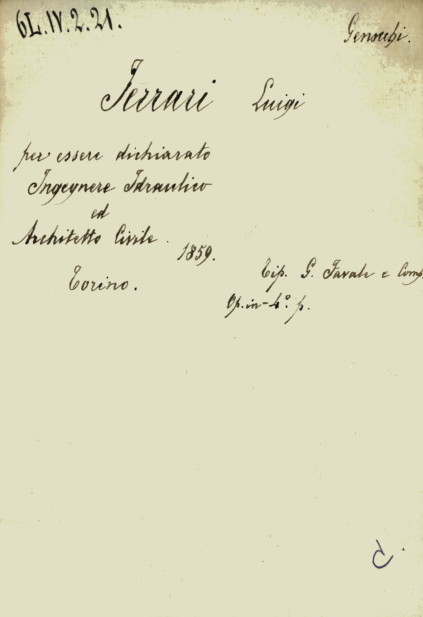 6L.IV.2.21.
Genocchi.
Ferrari Luigi
per essere dichiarato
Ingegnere Idraulico
ed
Architetto Civile.
1859.
Torino.
Tip. G. Favale e Comp.
Op. in-4º. p.